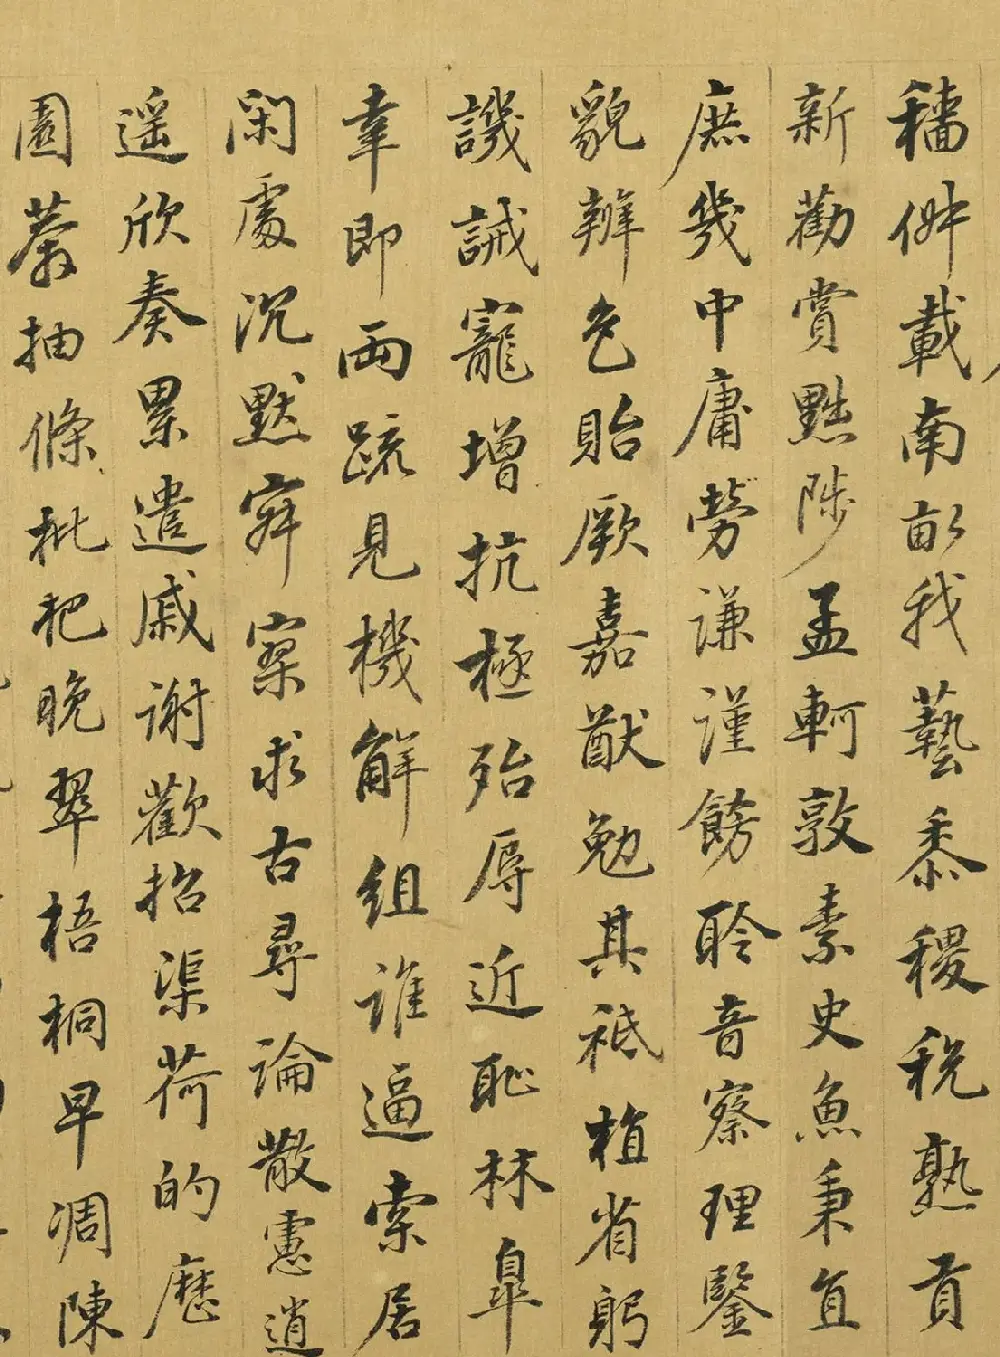 穡俶載南畝我藝黍稷稅熟貢
新勸賞黜陟孟軻敦素史魚秉直
庶幾中庸勞謙謹飭聆音察理鑒
貌辨色貽厥嘉猷勉其祗植省躬
譏誡寵增抗極殆辱近恥林皐
幸即兩疏見機解組誰逼索居
閑處沉默寂寥求古尋論散慮逍
遥欣奏累遣慼謝歡招渠荷的歷
園莽抽條枇杷晚翠梧桐早凋陳